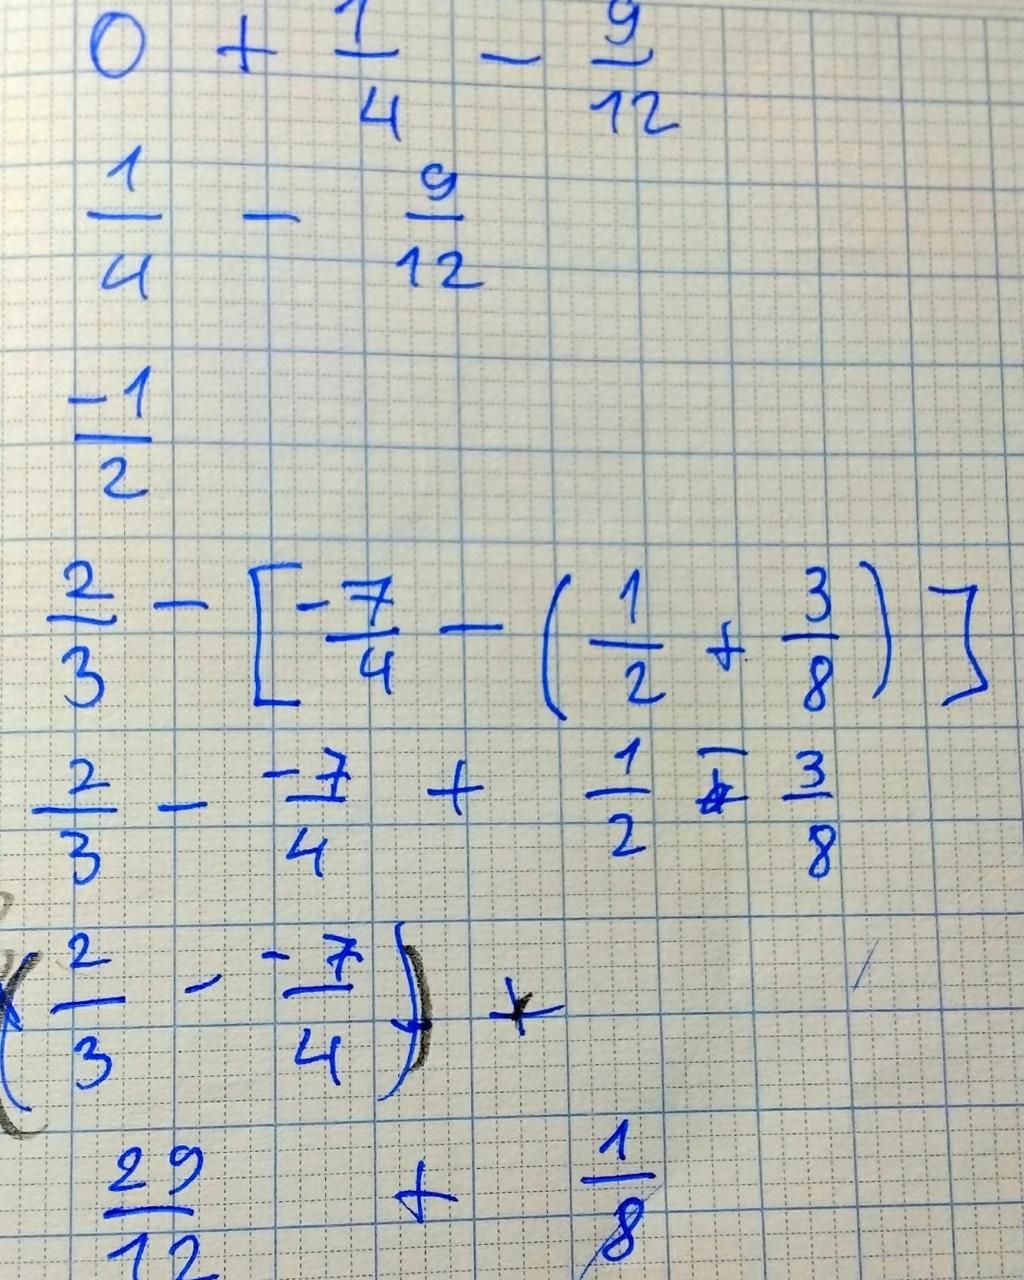 0 + 1/4 - 9/12
1/4 - 9/12
-1/2
2/3 - [-7/4 - (1/2 + 3/8)]
2/3 - -7/4 + 1/2 - 3/8
(2/3 - -7/4) +
29/12 + 1/8